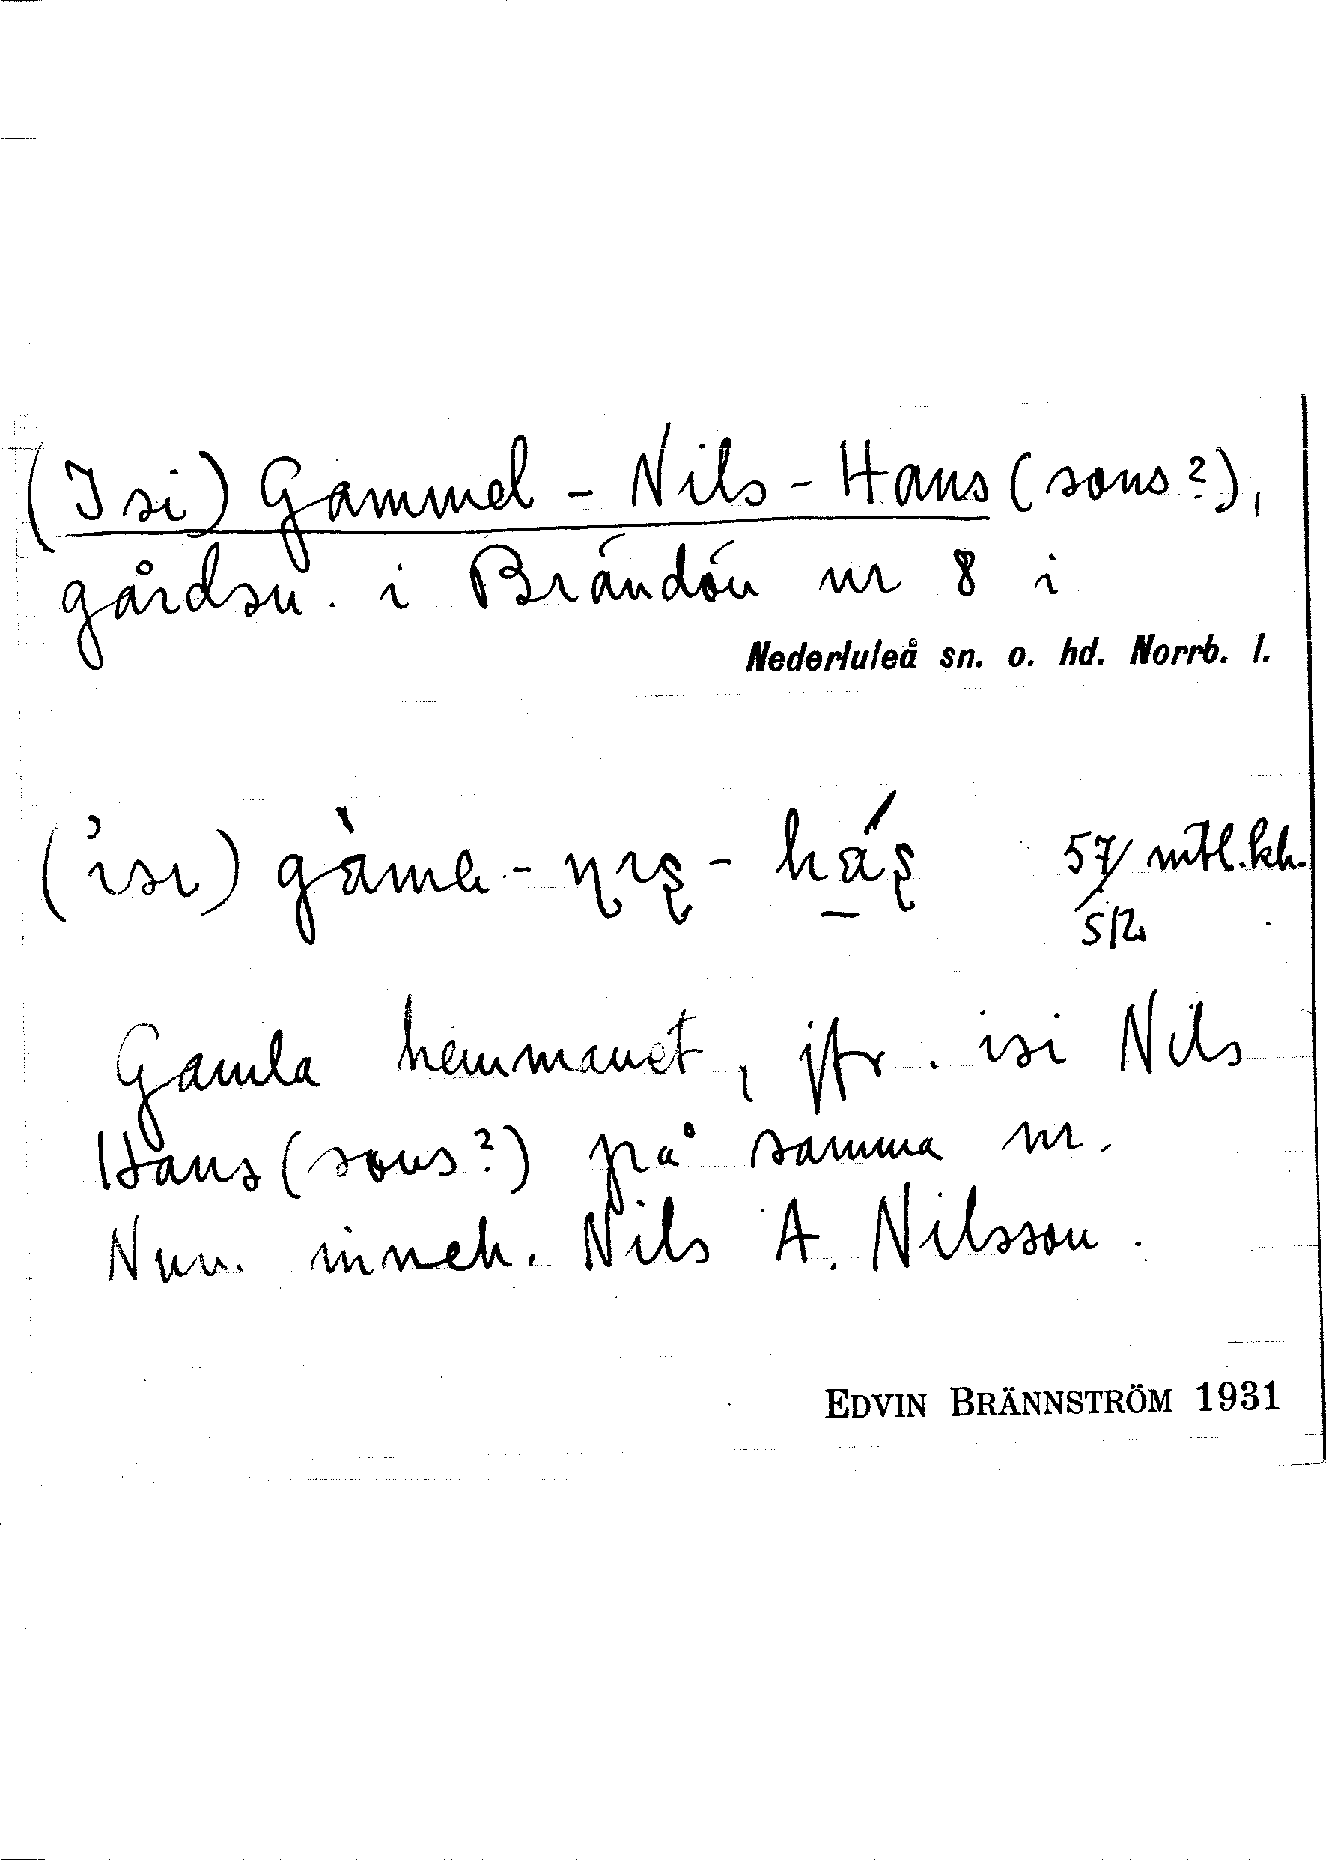 (Isi) Gammel - Nils - Hans (sons?),
gårdsn. i Brändön nr 8 i
Nederluleå sn. o. hd. Norrb. l.
('ısı) gàmɐl - ɳɪʂ - há̱ʂ 57/512 mtl.kh.
Gamla hemmanet, jfr. isi Nils
Hans (sons?) på samma nr.
Nuv. inneh. Nils A. Nilsson.
EDVIN BRÄNNSTRÖM 1931